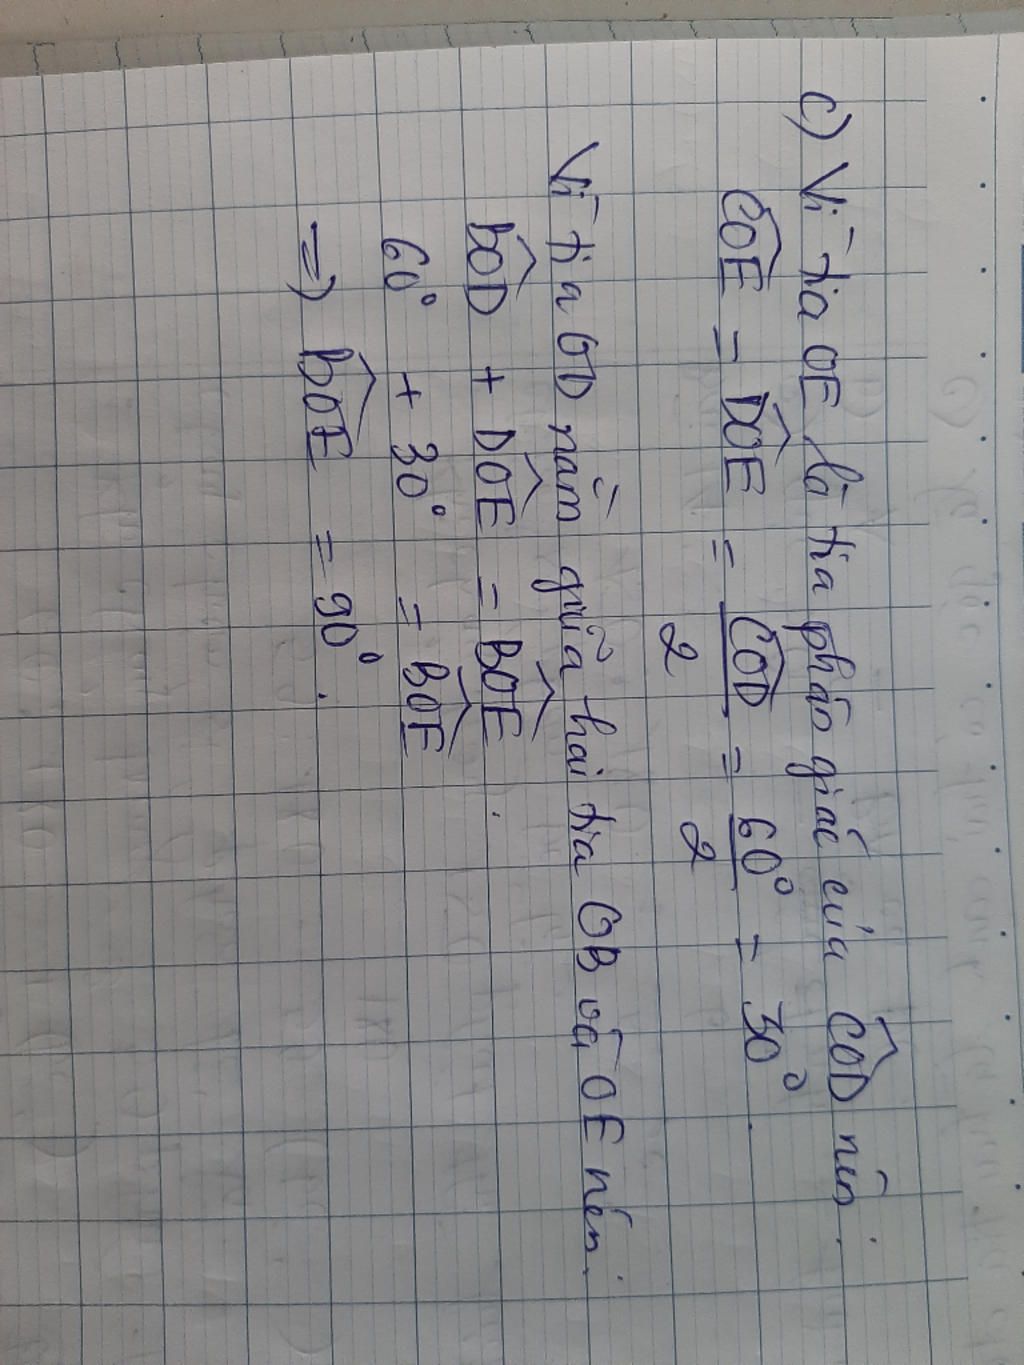 c) Vì tia OE là tia phân giác của \widehat{COD} nên:
\widehat{COE} = \widehat{DOE} = \frac{\widehat{COD}}{2} = \frac{60°}{2} = 30°.
Vì tia OD nằm giữa hai tia OB và OE nên:
\widehat{BOD} + \widehat{DOE} = \widehat{BOE}.
60° + 30° = \widehat{BOE}
=> \widehat{BOE} = 90°.